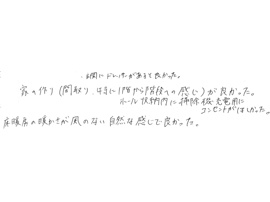 2階にトイレがあると良かった。
家の作り(間取り.特に1階から2階への感じ)が良かった。
ホール収納内に掃除機充電用に
コンセントがほしかった。
床暖房の暖かさが風のない自然な感じで良かった。